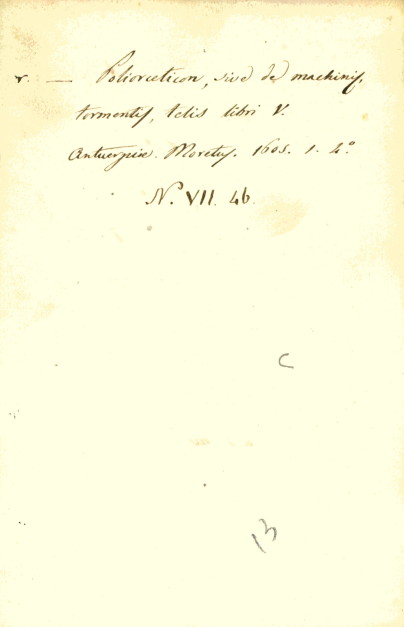 r. — Poliorceticon, sive de machinis,
tormentis, telis libri V.
Antverpiæ. Moretus. 1605. 1. 4°
N. VII. 46.
C
13